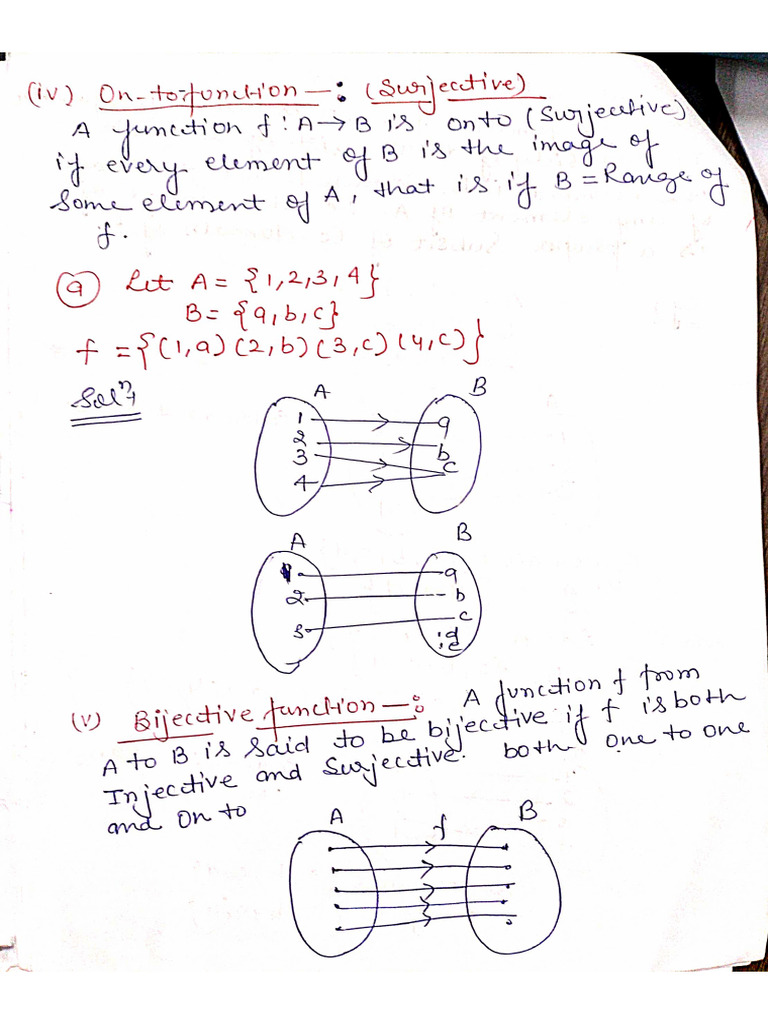 (iv) On-to-function —: (Surjecctive)
A funcction f : A → B is onto (Surjecctive)
if every element of B is the image of
some element of A, that is if B = Range of
f.
(a) Let A = {1,2,3,4}
B = {a,b,c}
f = {(1,a) (2,b) (3,c) (4,c)}
Solⁿ
A B
1 a
2 b
3 c
4
A B
1 a
2 b
3 c
d
e
(v) Bijecctive function —: A funcction f from
A to B is said to be bijecctive if f is both
Injecctive and Surjecctive. both one to one
and on to
A f B